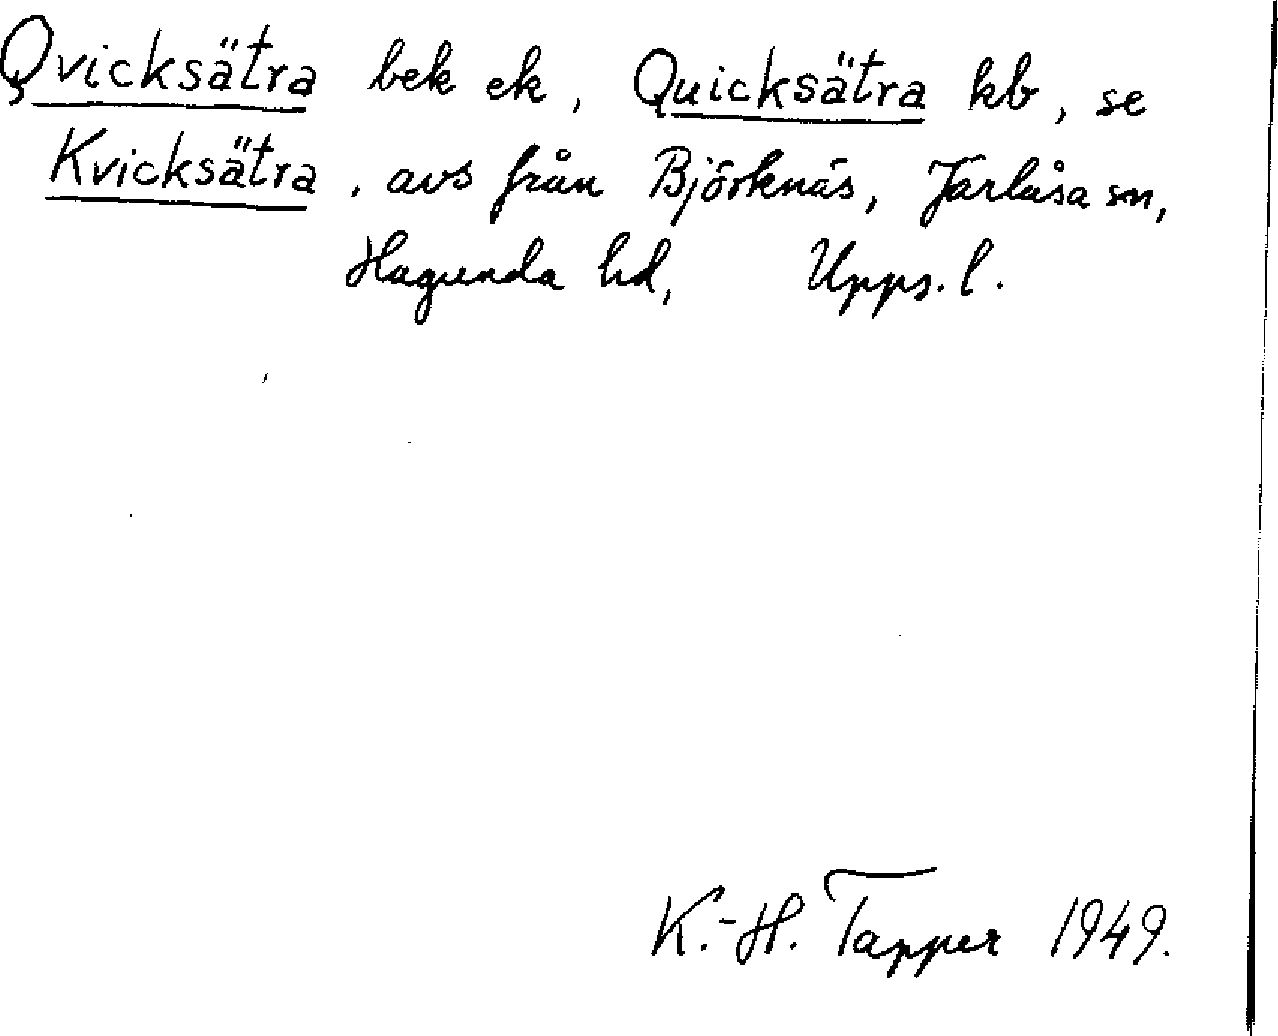 Qvicksätra bek ek, Quicksätra kb, se
Kvicksätra, avs från Björknäs, Järlåsa sn,
Hagunda hd, Upps. l.
K.-H. Tapper 1949.